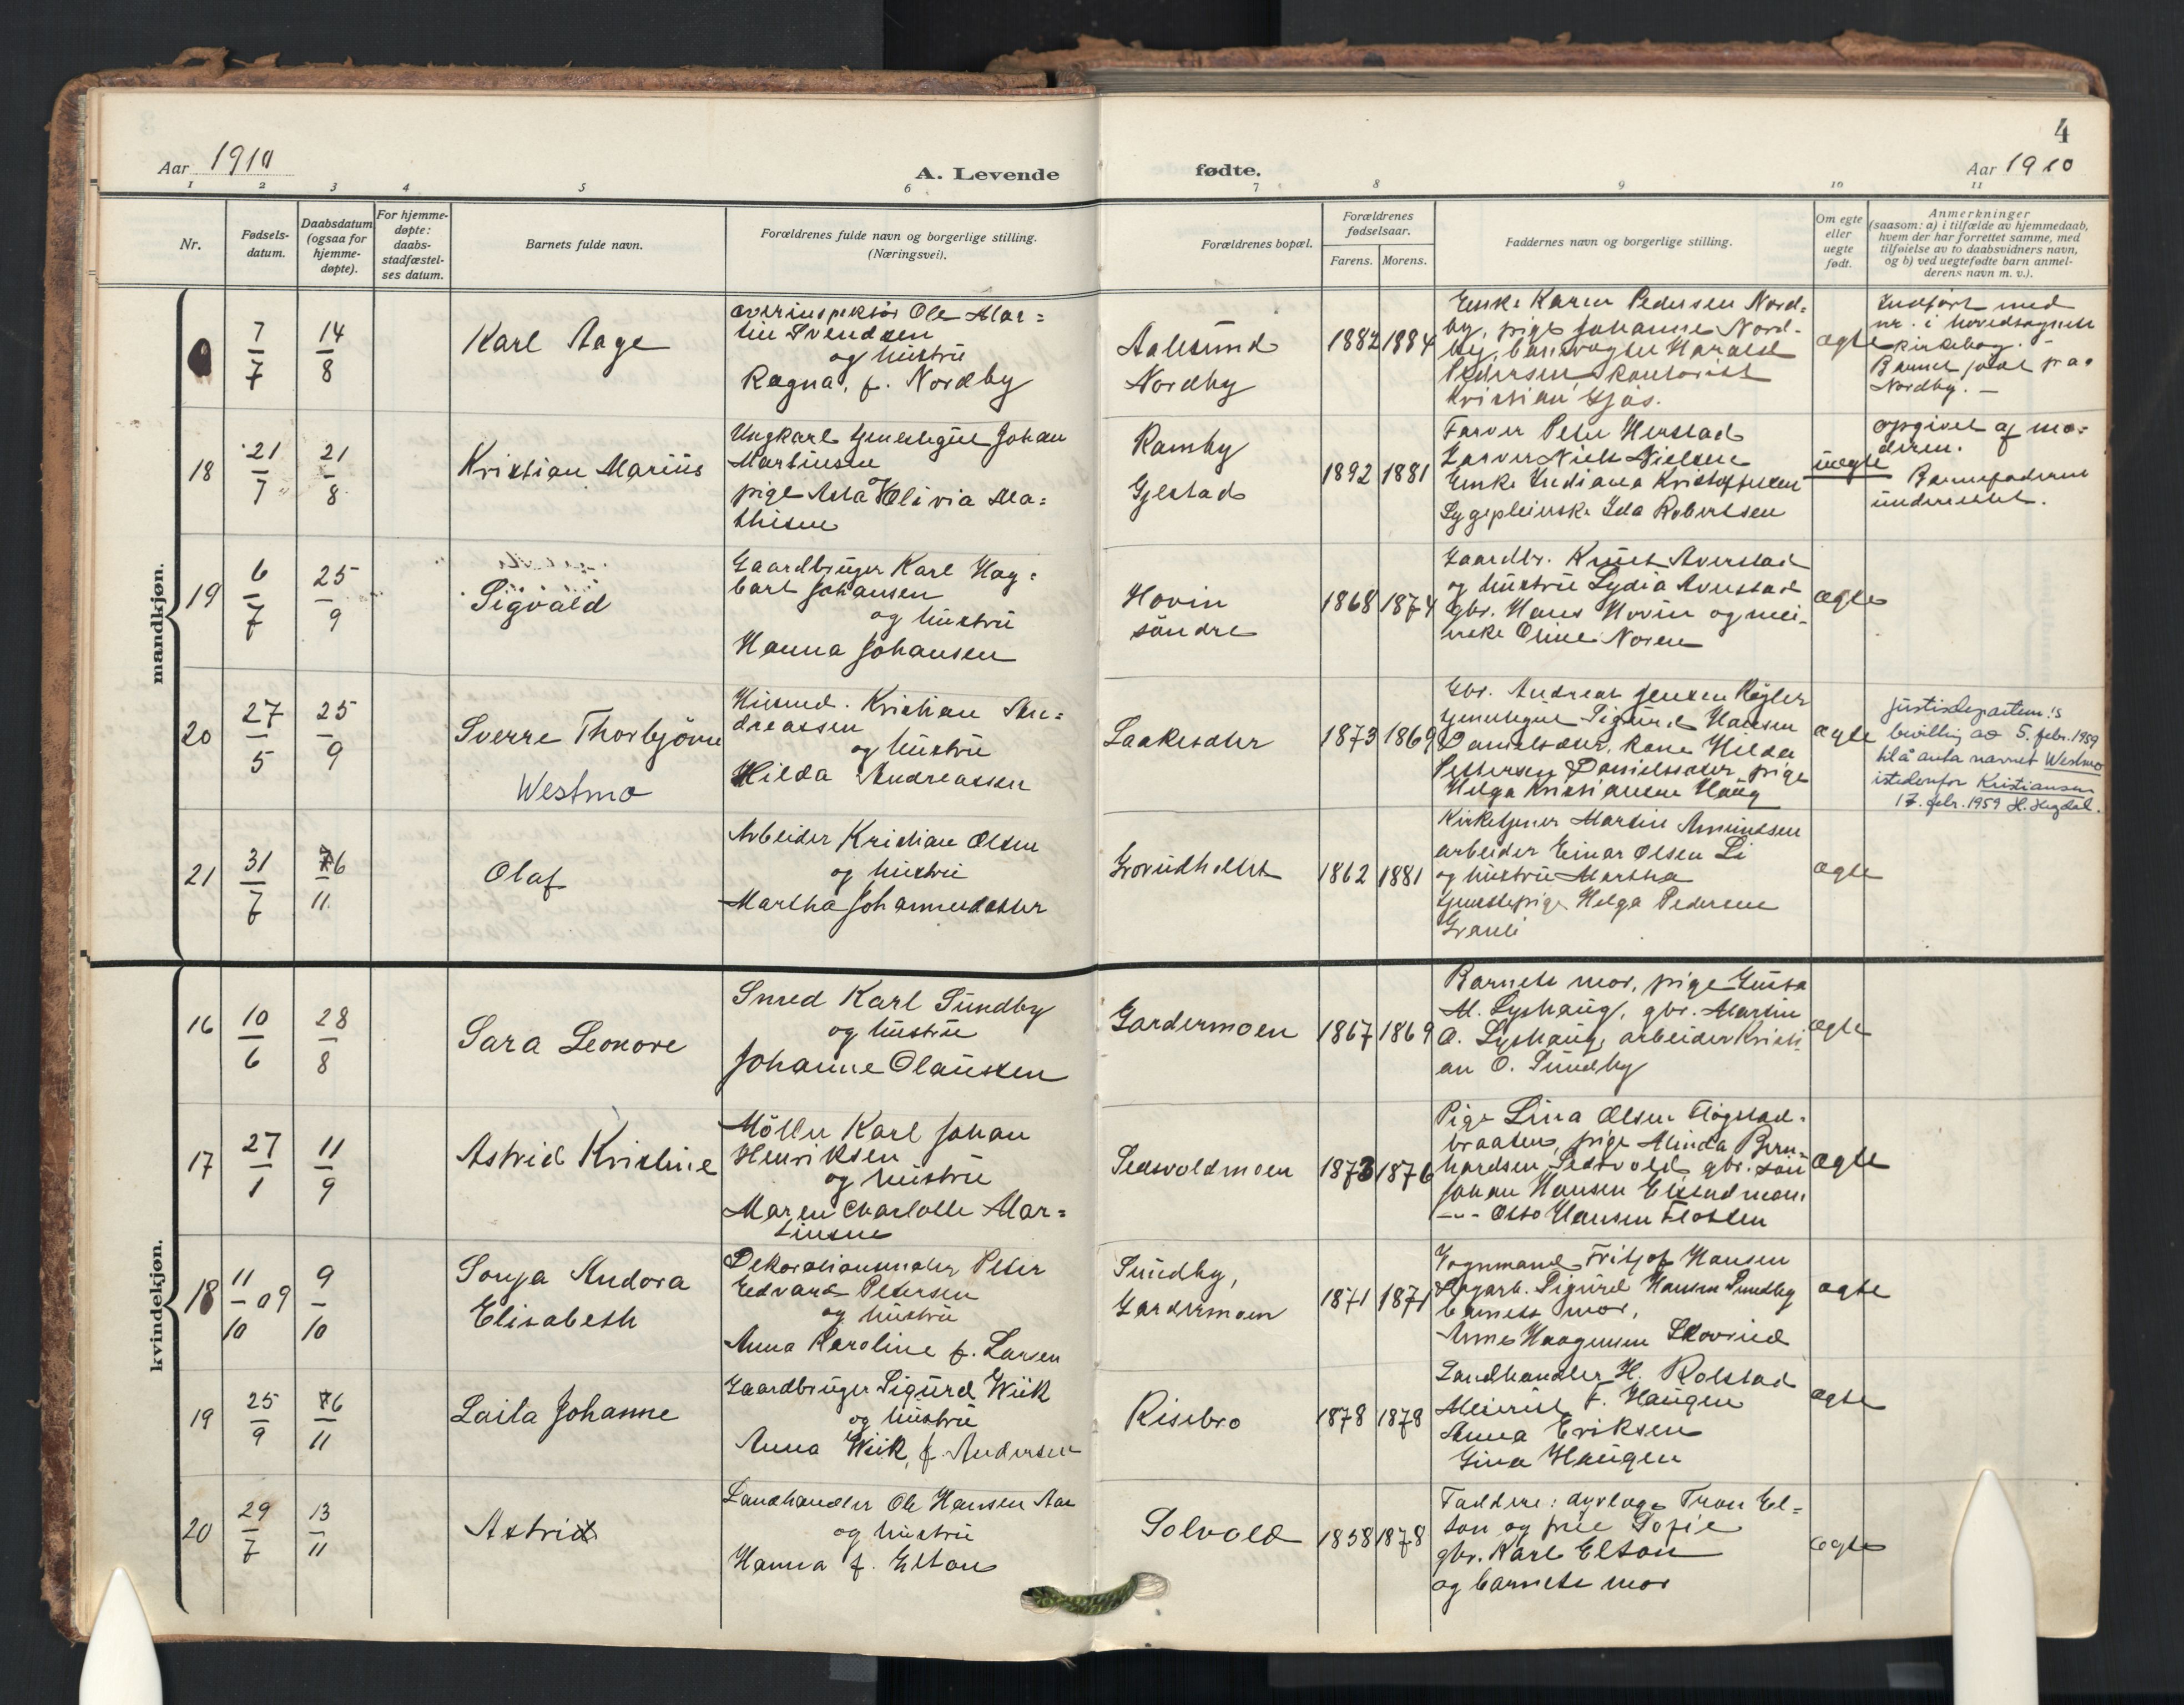 4
Aar 1910
A. Levende
fødte.
Aar 1910
1 2 3 4 5 6 7 8 9 10 11
Nr.
Fødsels-
datum.
Daabsdatum
(ogsaa for
hjemme-
døpte).
For hjemme-
døpte:
daabs-
stadfæstel-
ses datum.
Barnets fulde navn.
Forældrenes fulde navn og borgerlige stilling.
(Næringsvei).
Forældrenes bopæl.
Forældrenes
fødselsaar.
Farens. Morens.
Faddernes navn og borgerlige stilling.
Om egte
eller
uegte
født.
Anmerkninger
(saasom: a) i tilfælde av hjemmedaab,
hvem der har forrettet samme, med
tilføielse av to daabsvidners navn,
og b) ved uegtefødte barn anmel-
derens navn m. v.).
mandkjøn.
7/7
14/8
Karl Aage
Ole Mar=
tin Svendsen
og hustru
Ragna, f. Nordby
Aalesund
Nordby
1882 1884
Enke Karen Pedersen Nord-
by, pige Johanne Nord-
by, banevogter Harald
Pedersen, kontorist
Kristian Gjös.
ægte
Indført med
nr. i hovedsognets
kirkebog. -
Barnet født paa
Nordby. -
18
21/7
21/8
Kristian Marius
Ungkarl tjenestegut Johan
Martinsen
og
pige Asta Olivia Ma=
thisen
Ramby
Gjestad
1892 1881
Farver Peter Herstad
Farver Niels Nielsen
Enke Indiana Kristoffersen
Sygepleierske Ida Robertsen
uægte
opgivet af mo=
deren.
Barnefaderen
underrettet.
19
6/7
25/9
Sigvald
Gaardbruger Karl Hag=
bart Johansen
og hustru
Hanna Johansen
Hovin
söndre
1868 1874
Gaardbr. Knut Averstad
og hustru Lydia Averstad
gbr. Hans Hovin og mei-
erske Oline Noren
ægte
20
27/5
25/9
Sverre Thorbjörn
Westmo
Husmd. Kristian An=
dreassen
og hustru
Hilda Andreassen
Laakesæter
1873 1869
Gbr. Andreas Jensen Røgler
tjenestegut Sigurd Hansen
Danielsæter, kone Hilda
Pettersen Danielssæter, pige
Helga Kristiansen Haug
ægte
Justisdepartem.'s
bevilling av 5. febr. 1959
til å anta navnet Westmo
istedenfor Kristiansen
17. febr. 1959 H. Hegdal.
21
31/7
6/11
Olaf
Arbeider Kristian Olsen
og hustru
Martha Johannesdatter
Grorudholtet
1862 1881
Kirketjener Martin Amundsen
arbeider Einar Olsen Li
og hustru Martha
tjenestepige Helga Pedersen
Granli
ægte
kvindekjøn.
16
10/6
28/8
Sara Leonore
Smed Karl Sundby
og hustru
Johanne Olaussen
Gardermoen
1867 1869
Barnets mor, pige Gusta
M. Lyshaug, gbr. Martin
A. Lyshaug, arbeider Kristi-
an O. Sundby
ægte
17
27/1
11/9
Astrid Kristine
Möller Karl Johan
Henriksen
og hustru
Maren Charlotte Mar=
tinsen
Sessvoldmoen
1873 1876
Pige Lina Olsen Flögstad-
braaten, pige Alinda Bern-
hardsen Sessvold, gbr. sön
Johan Hansen
-"- Otto Hansen Flatlen
ægte
18
11/10 09
9/10
Sonja Andora
Elisabeth
Dekorationsmaler Peter
Edvard Petersen
og hustru
Anna Karoline f. Larsen
Sundby,
Gardermoen
1871 1871
Vognmand Fritjof Hansen
Sigurd Hansen Sundby
barnets mor,
Anne Haagensen Skovrud
ægte
19
25/9
6/11
Laila Johanne
Gaardbruger Sigurd Wiik
og hustru
Anna Wiik, f. Andersen
Risebro
1878 1878
Landhandler H. Rolstad
Meierist F. Haugen
Anna Eriksen
Lina Haugen
ægte
20
29/7
13/11
Astrid
Landhandler Ole Hansen Aas
og hustru
Hanna f. Elton
Solvold
1858 1878
Faddere: dyrlæge Tron El=
ton og frue Sofie
gbr. Karl Elton
og barnets mor
ægte